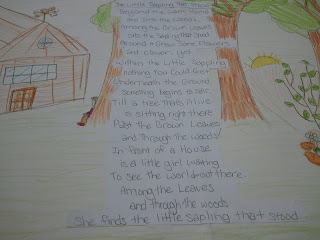 The Little Sapling That Stood
Beyond the Barn Stand
and Into the Woods,
Among the Brown Leaves
sits the Sapling that Stood
Around it Grew Some Flowers
and Clovers Yet
Within the Little Sapling
nothing You Could Get
Underneath the Ground
something begins to stir
Till a tree thats Alive
is sitting right there
Past the Brown Leaves
and Through the woods
In Front of a House
is a little girl waiting
To see the world out there.
Among the Leaves
and Through the woods
She finds the little sapling that stood